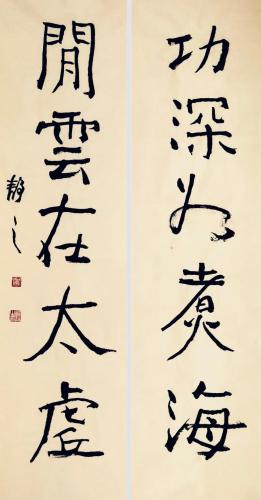 功深煮海
閒雲在太虛
靜之